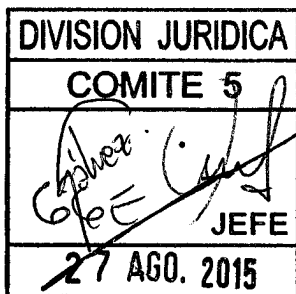 DIVISION JURIDICA
COMITE 5
JEFE
27 AGO. 2015